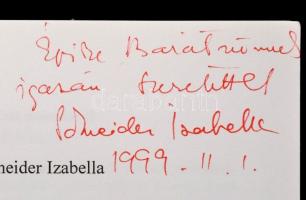 Épike Barátnőmnek
igazán szeretettel
Schneider Izabella
neider Izabella 1999. 11. 1.
darabanth